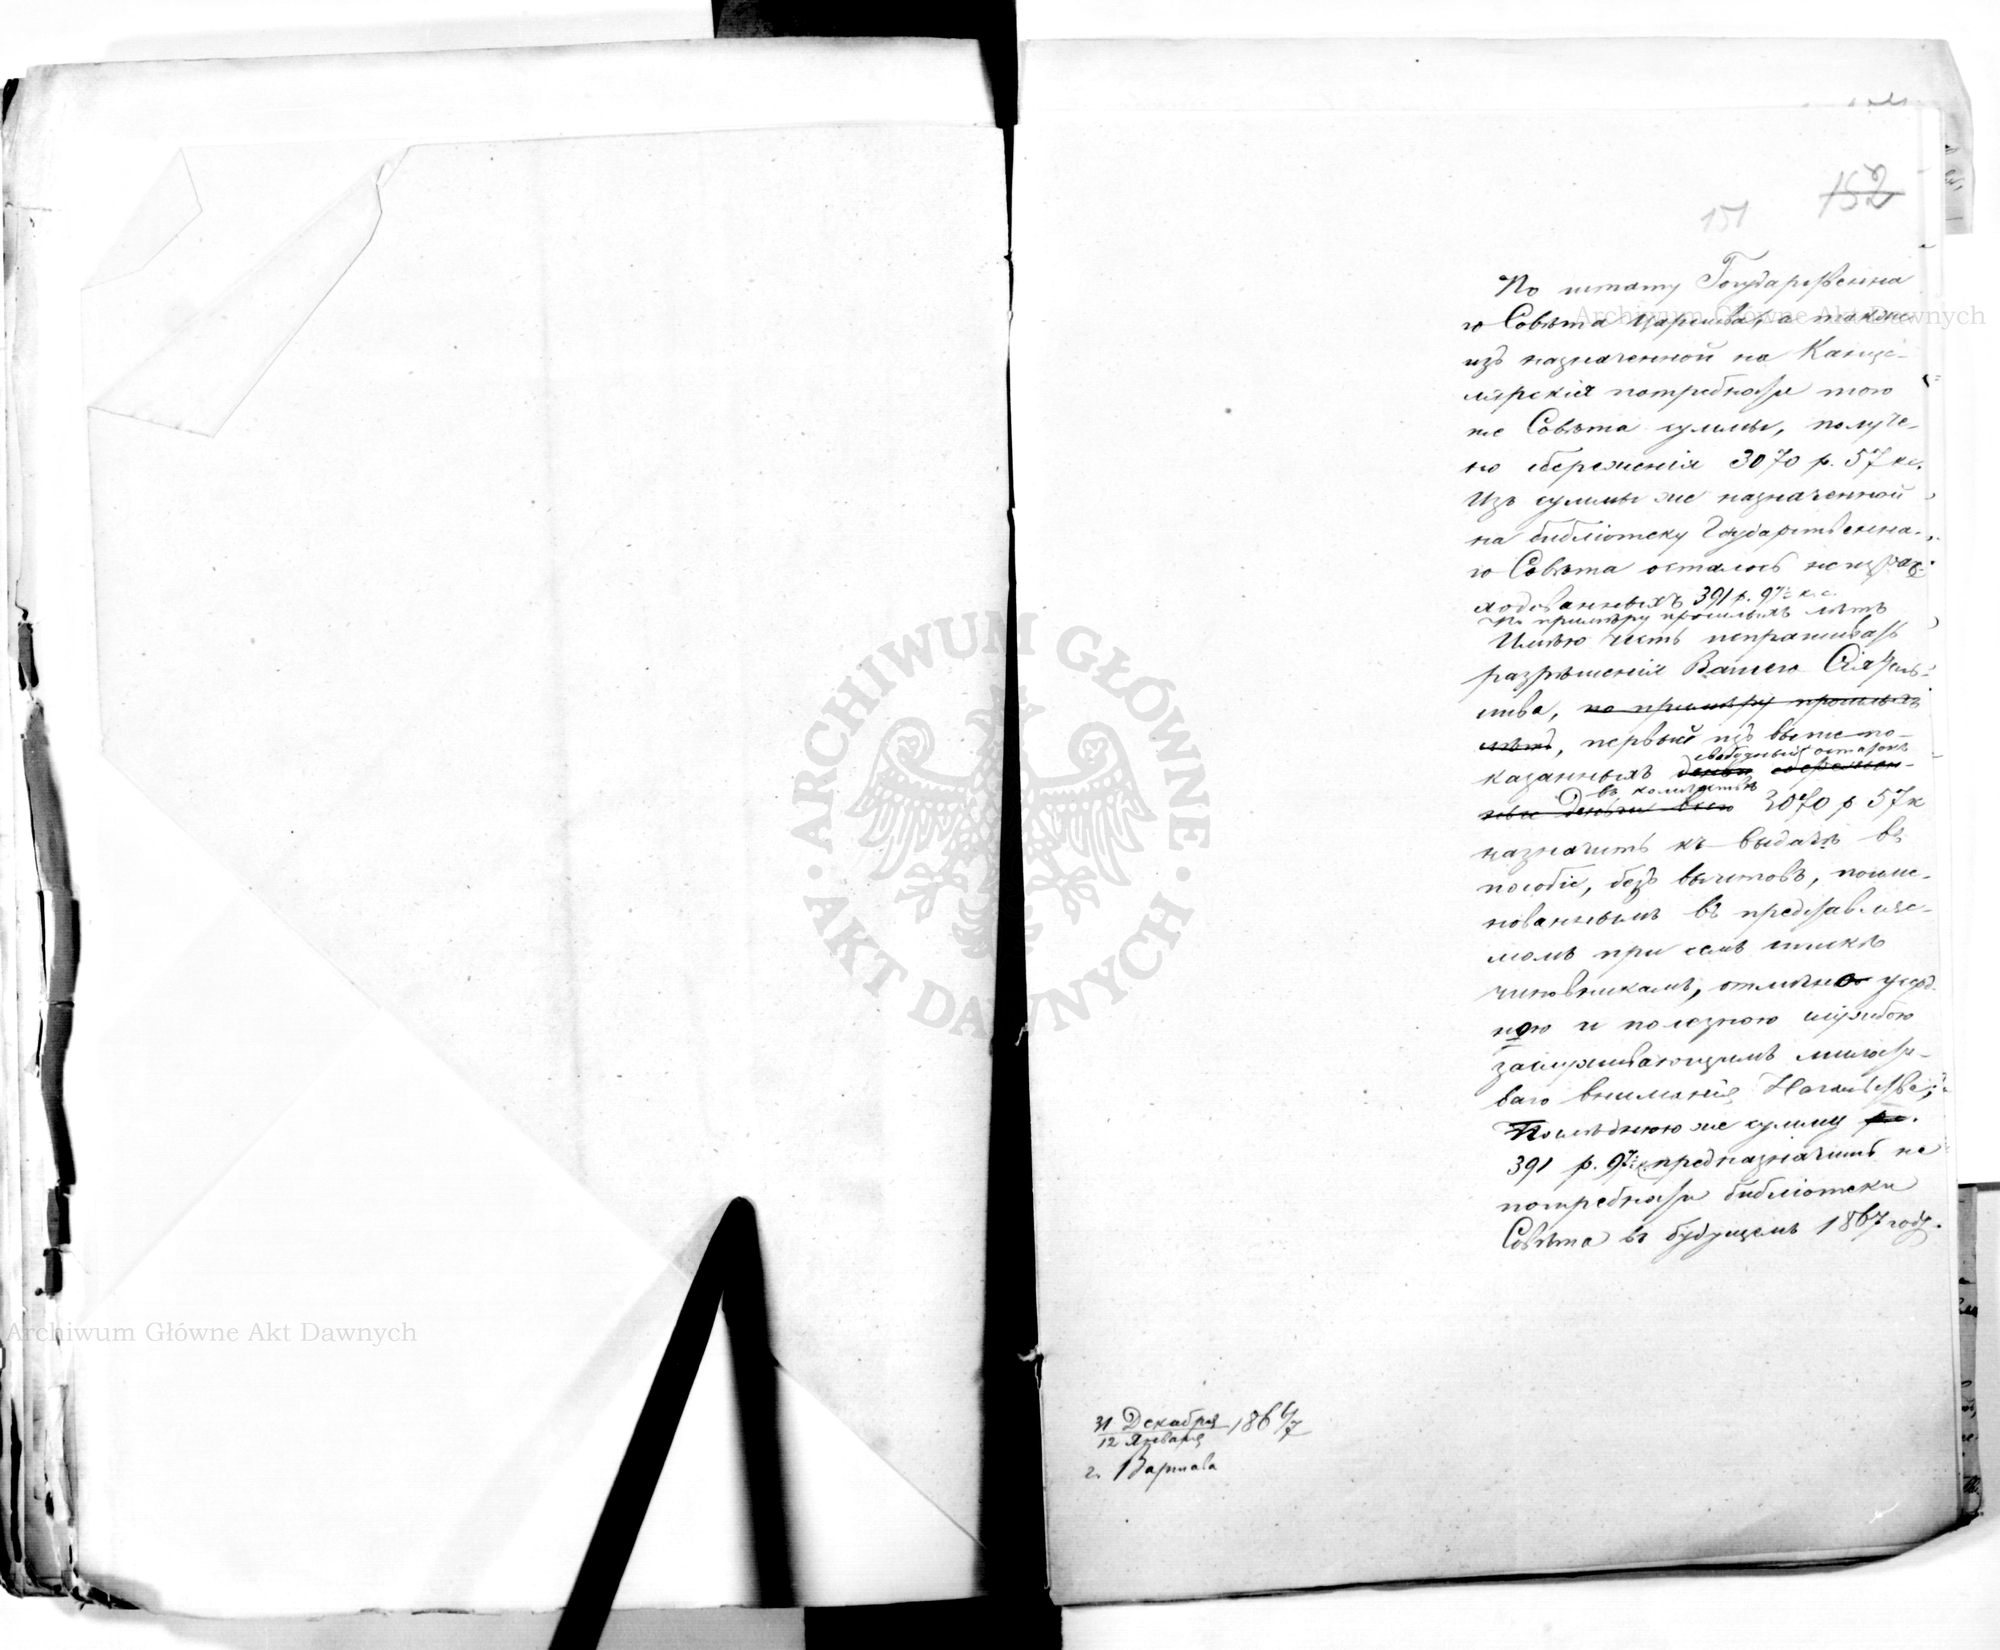 152
151
По штату Государственна
го Совѣта Царства, а также
изъ назначенной на Канце-
лярскія потребности того
же Совѣта суммы, получе-
но сбереженія 3070 р. 57 к.
Изъ суммы же назначенной
на библіотеку Государственна-
го Совѣта осталось неизрас-
ходованныхъ 391 р. 97½ к.
По примѣру прошлыхъ лѣтъ
Имѣю честь испрашивать
разрѣшенія Вашего Сіятель-
ства, по примѣру прошлыхъ
лѣтъ, первый изъ выше по-
свободный остатокъ
казанныхъ
въ количествѣ
3070 р 57 к
назначить къ выдачѣ въ
пособіе, безъ вычетовъ, поиме-
нованнымъ въ представляе-
момъ при семъ спискѣ
чиновникамъ, отлично усерд-
ною и полезною службою
заслуживающимъ милости-
ваго вниманія Начальства;
Послѣднюю же сумму
391 р. 97½ к. предназначить на
потребности библіотеки
Совѣта въ будущемъ 1867 году.
31 Декабря 1866/7
12 Января
г. Варшава
Archiwum Główne Akt Dawnych
Archiwum Główne Akt Dawnych
ARCHIWUM GŁÓWNE · AKT DAWNYCH ·